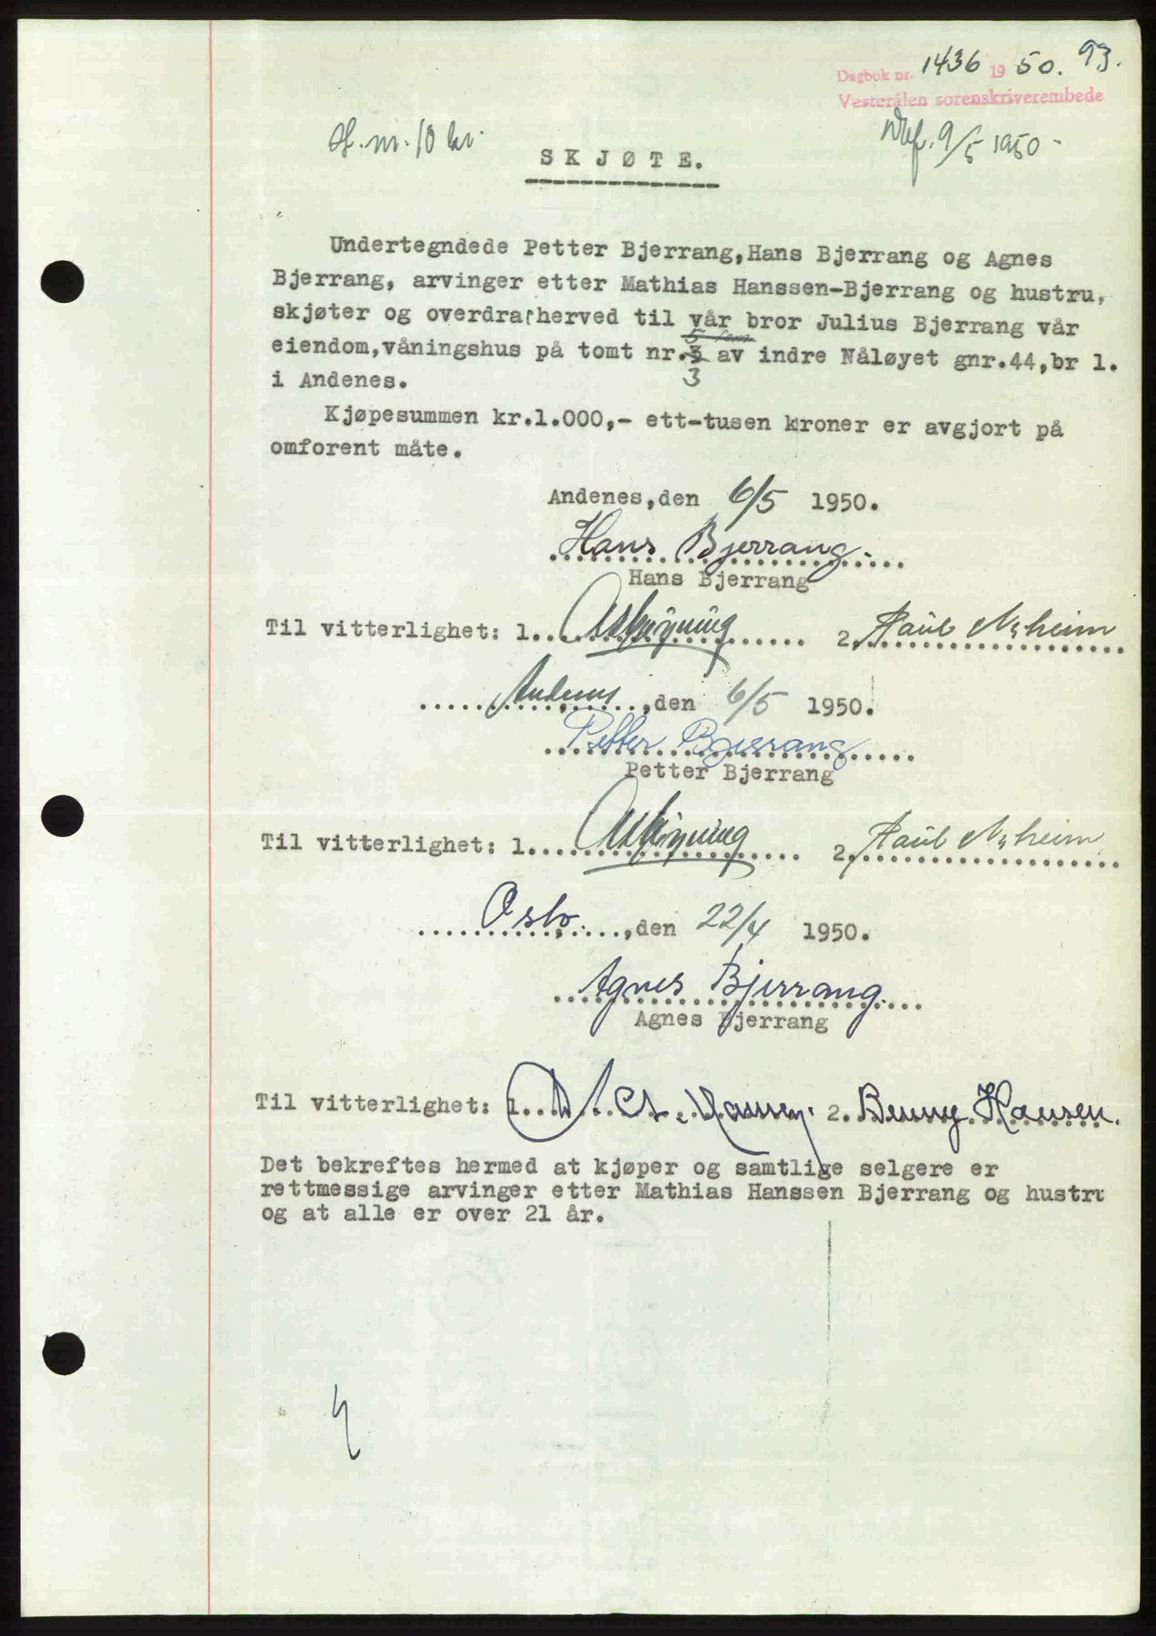 Dagbok nr. 1436 1950. 93.
Vesterålen sorenskriverembede
st.m. 10 kr. 9/5 1950-
SKJØTE.
Undertegndede Petter Bjerrang,Hans Bjerrang og Agnes
Bjerrang, arvinger etter Mathias Hanssen-Bjerrang og hustru,
skjøter og overdrar herved til vår bror Julius Bjerrang vår
5
eiendom,våningshus på tomt nr.3 av indre Nåløyet gnr.44,br 1.
3
i Andenes.
Kjøpesummen kr.1.000,- ett-tusen kroner er avgjort på
omforent måte.
Andenes,den 6/5 1950.
Hans Bjerrang.
Hans Bjerrang
Til vitterlighet: 1. 2. Paul
Andenes, den 6/5 1950.
Petter Bjerrang
Petter Bjerrang
Til vitterlighet: 1. 2. Paul
Oslo. ,den 22/4 1950.
Agnes Bjerrang.
Agnes Bjerrang
Til vitterlighet: 1. 2. Benny Hansen.
Det bekreftes hermed at kjøper og samtlige selgere er
rettmessige arvinger etter Mathias Hanssen Bjerrang og hustru
og at alle er over 21 år.